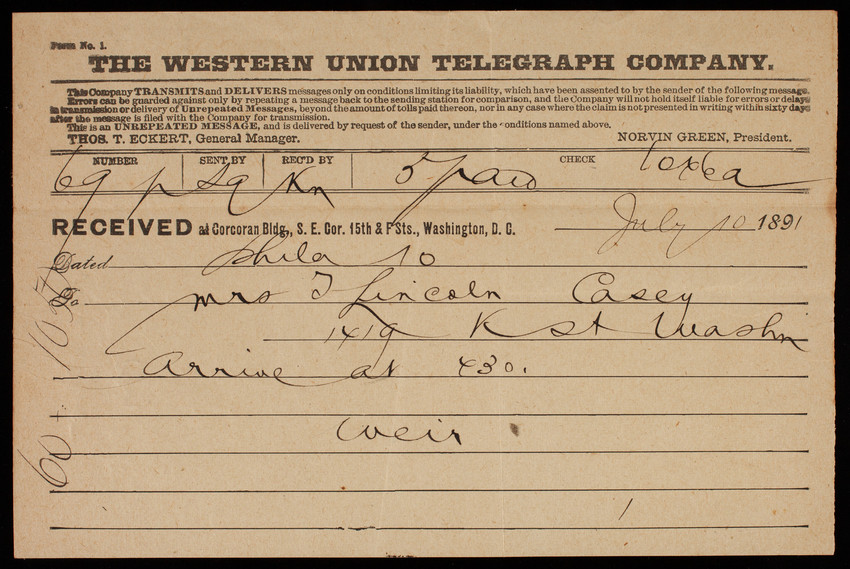 Form No. 1.
THE WESTERN UNION TELEGRAPH COMPANY.
This Company TRANSMITS and DELIVERS messages only on conditions limiting its liability, which have been assented to by the sender of the following message.
Errors can be guarded against only by repeating a message back to the sending station for comparison, and the Company will not hold itself liable for errors or delays
in transmission or delivery of Unrepeated Messages, beyond the amount of tolls paid thereon, nor in any case where the claim is not presented in writing within sixty days
after the message is filed with the Company for transmission.
This is an UNREPEATED MESSAGE, and is delivered by request of the sender, under the conditions named above.
THOS. T. ECKERT, General Manager. NORVIN GREEN, President.
NUMBER SENT BY REC'D BY CHECK
69 p Sq Kn 5 paid
RECEIVED at Corcoran Bldg., S. E. Cor. 15th & F Sts., Washington, D. C. July 10 1891
Dated Phila 10
To Mrs T Lincoln Casey
1419 K St Washn
Arrive at 430.
Weir